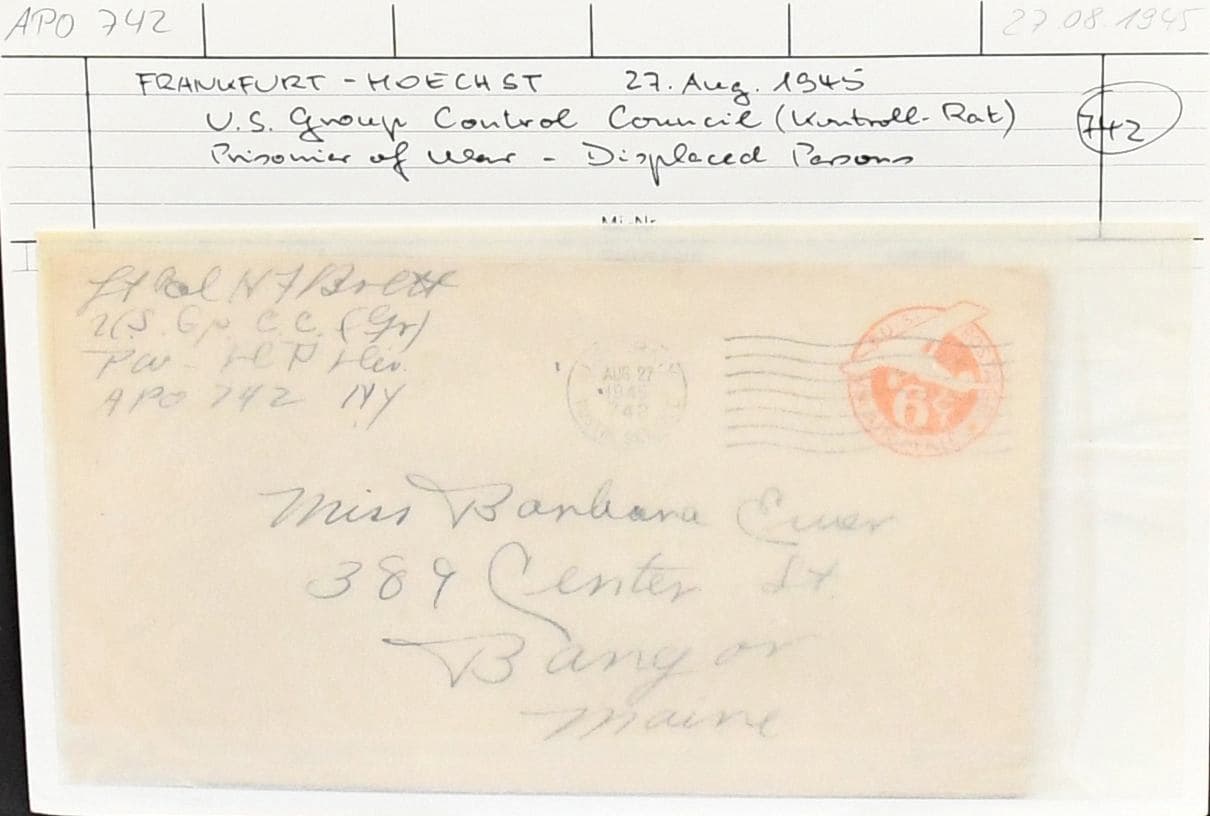 APO 742
27.08.1945
FRANKFURT - HOECHST 27. Aug. 1945
U.S. Group Control Council (Kontroll-Rat)
742
Prisonier of War - Displaced Persons
Mi.-Nr.
Lt Col N F Brett
U.S. Gp. C.C. (Gr)
PW - DP Div.
APO 742 NY
AUG 27
1945
742
6¢
Miss Barbara Ewer
389 Center St
Bangor
Maine